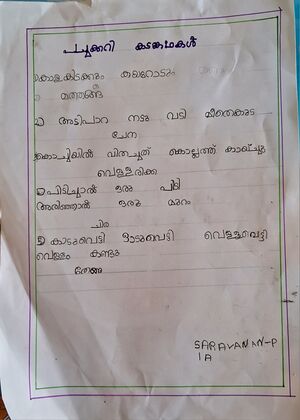 പച്ചക്കറി കടങ്കഥകൾ
കാള കിടക്കും കയറോടും
മത്തങ്ങ
2) അടിപാറ നടു വടി മീതെകുട
ചേന
കൊച്ചിയിൽ വിതച്ചത് കൊല്ലത്ത് കായ്ച്ചു
വെള്ളരിക്ക
പിടിച്ചാൽ ഒരു പിടി
അരിഞ്ഞാൽ ഒരു മുറം
ചീര
5) കാടുവെട്ടി ഓടുവെട്ടി വെള്ളവെട്ടി
വെള്ളം കണ്ടു
തേങ്ങ
SARAVANAN-P
1A